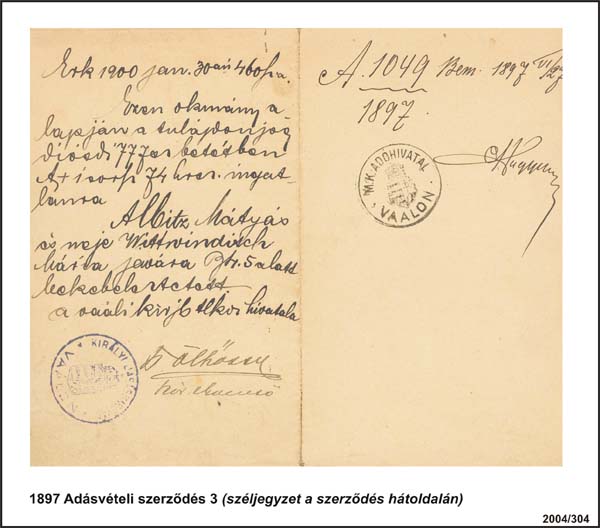 Érk 1900 jan. 30án
Ezen okmány a-
lapján a tulajdonjog
diósdi 777 betétben
A+1 sorsz 74 hrsz. ingat-
lanra
Albitz Mátyás
és neje Wittwindisch
Mária javára B 5 alatt
bekebeleztetett
a vaáli kir jb tlkvi hivatala
KIRÁLYI
A. 1049 Bem. 1897 VI/27
1897.
M. K. ADÓHIVATAL
VAALON.
1897 Adásvételi szerződés 3 (széljegyzet a szerződés hátoldalán)
2004/304